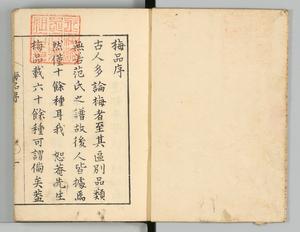 梅品序
古人多論梅者至其區別品類
無若范氏之譜故後人皆據焉
然僅十餘種耳我 恕菴先生
梅品載六十餘種可謂備矣蓋